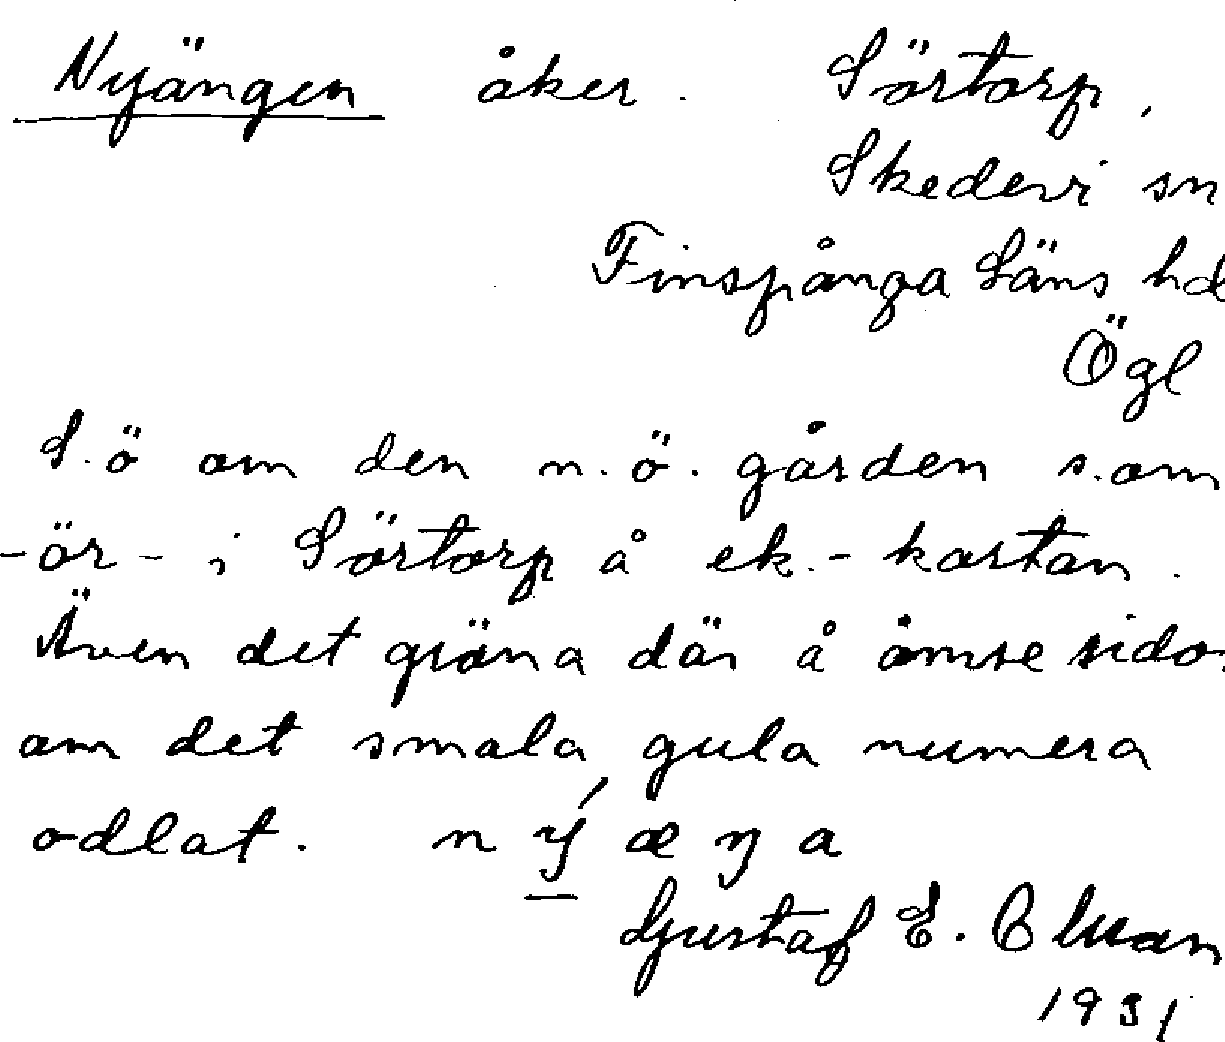 Nyängen åker. Sörtorp,
Skedevi sn
Finspånga läns hd
Ögl
S.ö om den n.ö. gården som
-ör- i Sörtorp å ek.-kartan.
Även det gröna där å ömse sidor
om det smala gula numera
odlat. n ý æ ŋ a
Gustaf E.
1931